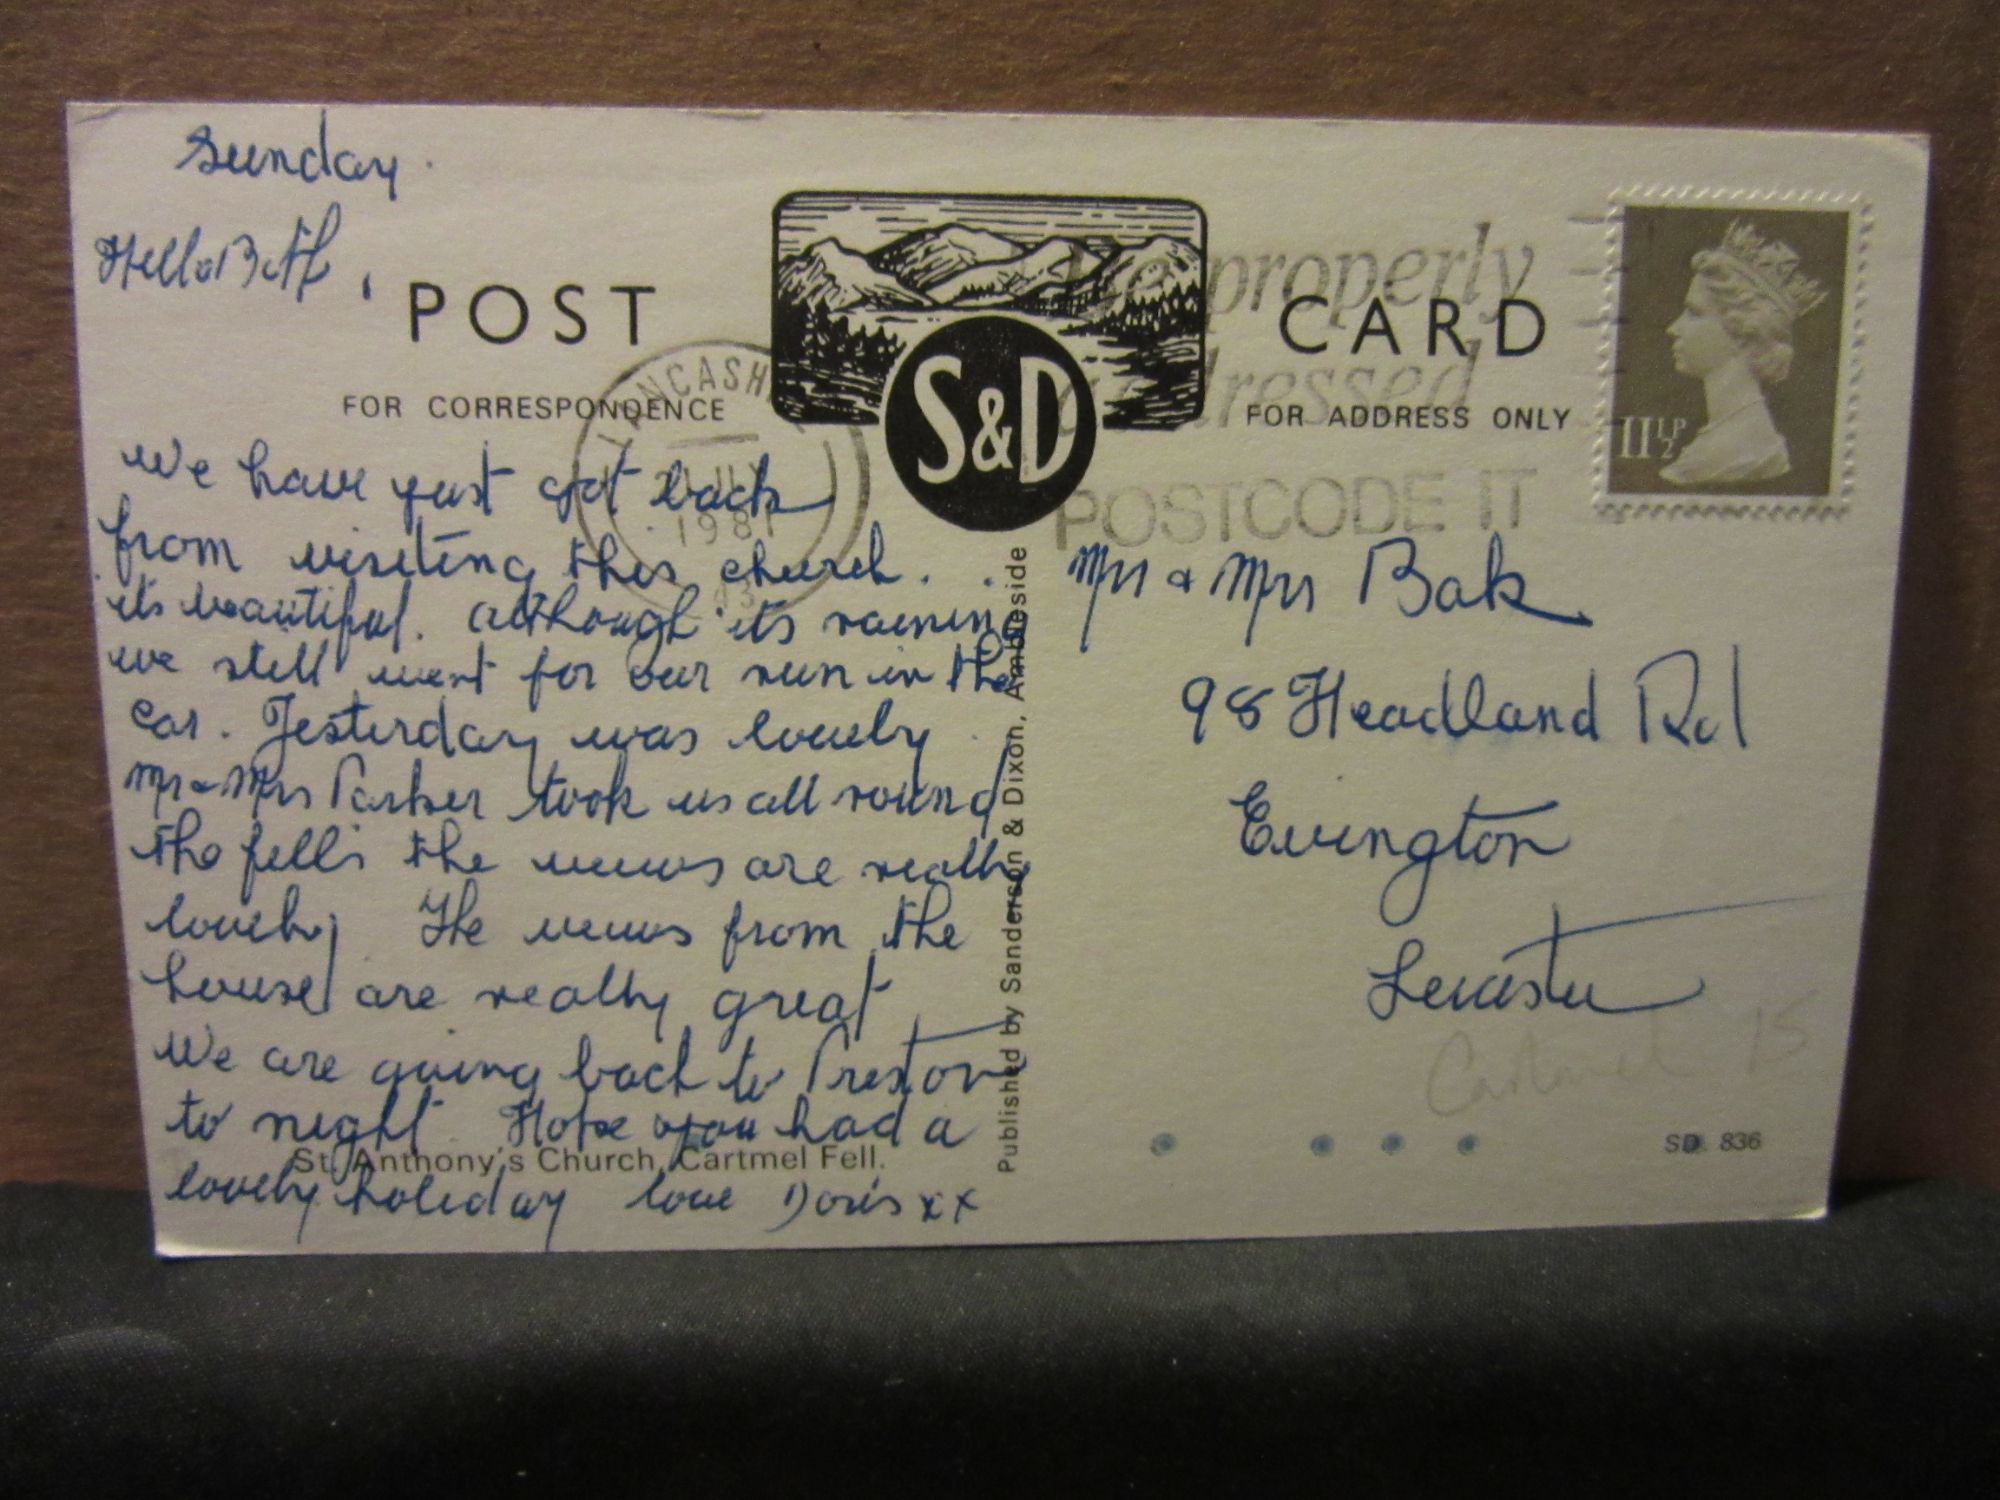 Sunday.
Hello Both,
POST CARD
FOR CORRESPONDENCE
FOR ADDRESS ONLY
S&D
LANCASH
JLY
1981
properly
addressed
POSTCODE IT
11½P
We have just got back
from visiting this church.
its beautiful. although its raining
we still went for our run in the
car. Yesterday was lovely.
Mr & Mrs Parker took us all round
the fells the views are really
lovely. The views from the
house are really great
We are going back to Preston
to night. Hope you had a
lovely holiday love Doris xx
St. Anthony's Church, Cartmel Fell.
Published by Sanderson & Dixon, Ambleside
Mr & Mrs Bak
98 Headland Rd
Evington
Leicester
Cartmel 15
SD. 836